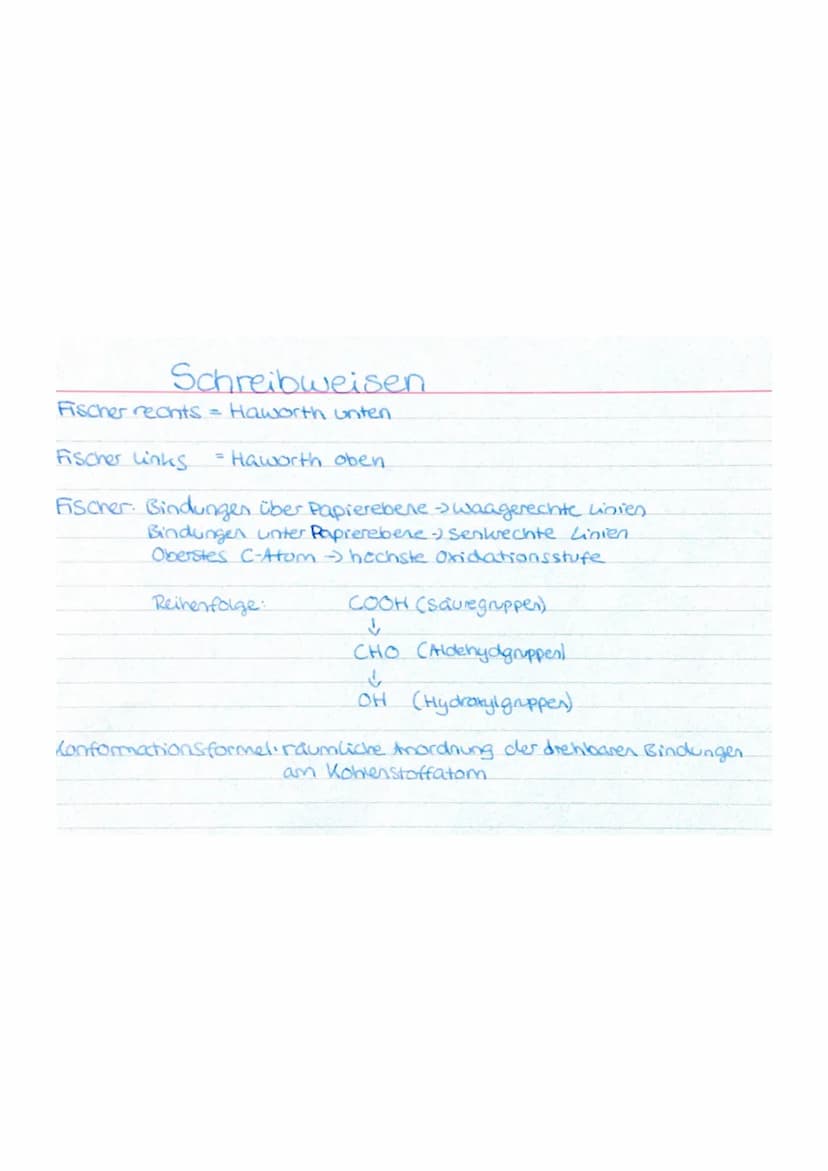 Schreibweisen
Fischer rechts = Haworth unten
Fischer links = Haworth oben
Fischer: Bindungen über Papierebene → waagerechte Linien
Bindungen unter Papierebene → senkrechte Linien
Oberstes C-Atom → höchste Oxidationsstufe
Reihenfolge: COOH (Säuregruppen)
↓
CHO (Aldehydgruppen)
↓
OH (Hydroxylgruppen)
Konformationsformel: räumliche Anordnung der drehbaren Bindungen
am Kohlenstoffatom